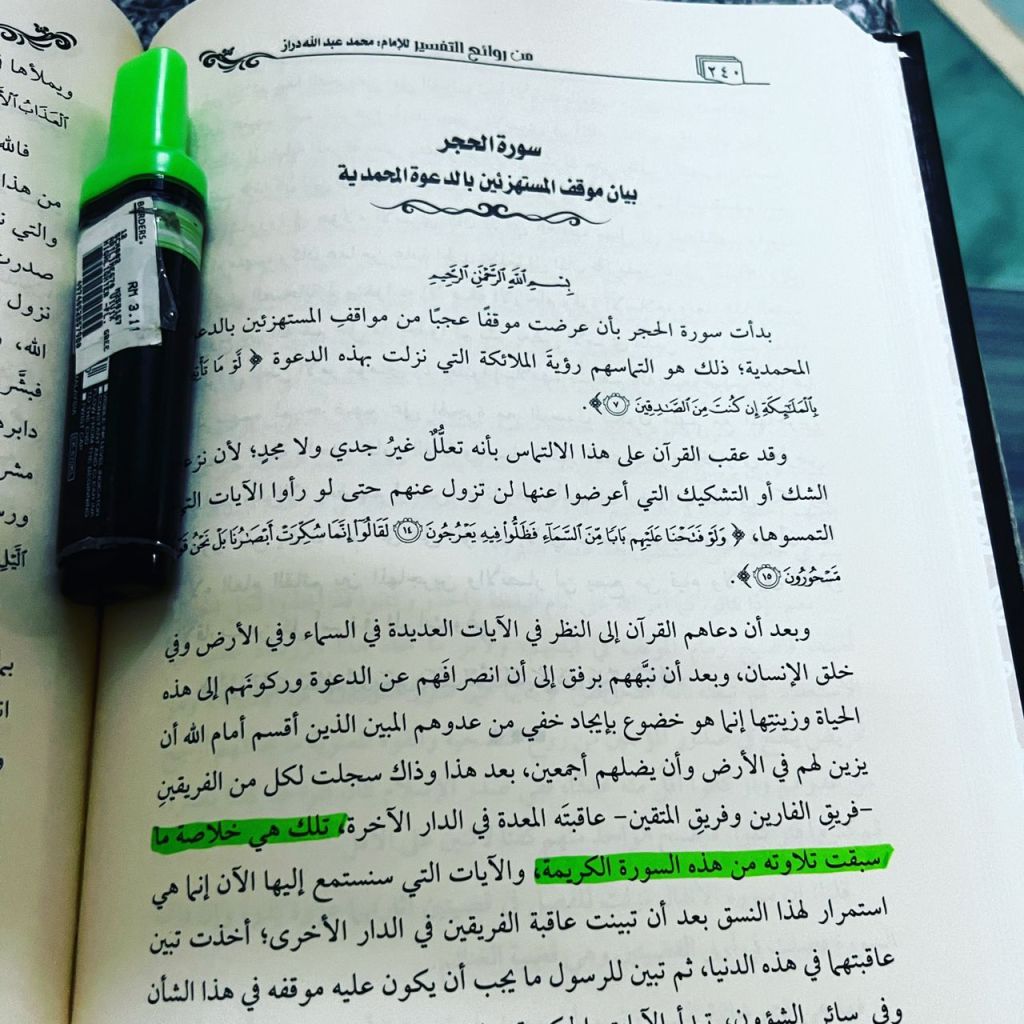 من روائع التفسير للإمام: محمد عبد الله دراز
٢٤٠
سورة الحجر
بيان موقف المستهزئين بالدعوة المحمدية
بِسْمِ اللَّهِ الرَّحْمَٰنِ الرَّحِيمِ
بدأت سورة الحجر بأن عرضت موقفًا عجبًا من مواقفِ المستهزئين
المحمدية؛ ذلك هو التماسهم رؤيةَ الملائكة التي نزلت بهذه الدعوة ﴿ لَّوْ مَا
بِالْمَلَٰٓئِكَةِ إِن كُنتَ مِنَ الصَّٰدِقِينَ ٧ ﴾.
وقد عقب القرآن على هذا الالتماس بأنه تعلُّلٌ غيرُ جدي ولا مجدٍ؛ لأن
الشك أو التشكيك التي أعرضوا عنها لن تزول عنهم حتى لو رأوا الآيات
التمسوها، ﴿ وَلَوْ فَتَحْنَا عَلَيْهِم بَابًا مِّنَ السَّمَآءِ فَظَلُّوا۟ فِيهِ يَعْرُجُونَ ١٤ لَقَالُوٓا۟ إِنَّمَا سُكِّرَتْ أَبْصَٰرُنَا بَلْ نَحْنُ
مَّسْحُورُونَ ١٥ ﴾.
وبعد أن دعاهم القرآن إلى النظر في الآيات العديدة في السماء وفي الأرض وفي
خلق الإنسان، وبعد أن نبَّههم برفق إلى أن انصرافَهم عن الدعوة وركونَهم إلى هذه
الحياة وزينتِها إنما هو خضوع بإيجاد خفي من عدوهم المبين الذين أقسم أمام الله أن
يزين لهم في الأرض وأن يضلهم أجمعين، بعد هذا وذاك سجلت لكل من الفريقينِ
-فريقِ الفارين وفريقِ المتقين- عاقبتَه المعدة في الدار الآخرة، تلك هي خلاصة ما
سبقت تلاوته من هذه السورة الكريمة، والآيات التي سنستمع إليها الآن إنما هي
استمرار لهذا النسق بعد أن تبينت عاقبة الفريقين في الدار الأخرى؛ أخذت تبين
عاقبتهما في هذه الدنيا، ثم تبين للرسول ما يجب أن يكون عليه موقفه في هذا الشأن
وفي سائر الشؤون،
BORDERS.
RM 3.11
ويملأها
الْعَذَابُ
فالله
من هذا
والتي
صدرت
نزول
الله،
فبشَّر
دابر